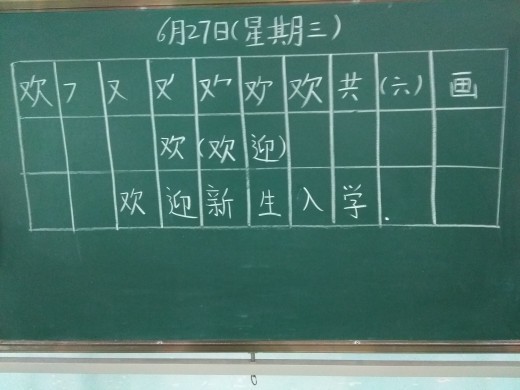 6月27日(星期三)
欢 フ 又 又' 欢 欢 欢 共 (六) 画
欢 (欢 迎)
欢 迎 新 生 入 学.